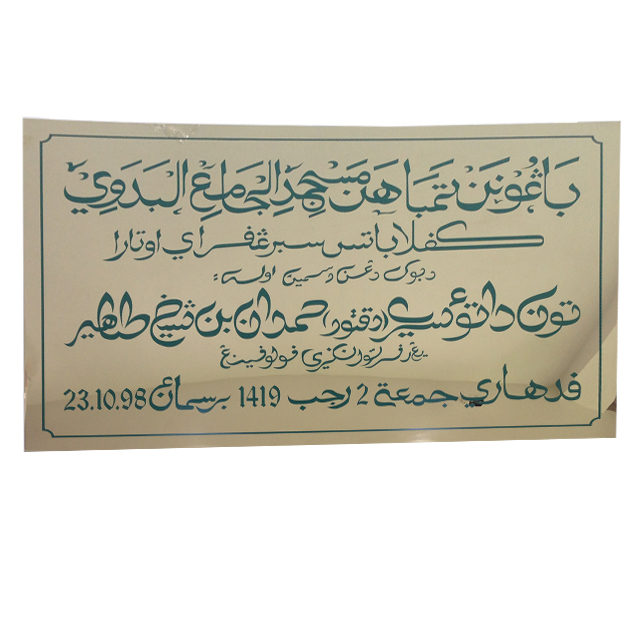 باڠونن تمباهن مسجد الجامع البدوي
كڤلا باتس سبرڠ ڤراي اوتارا
دبوك دڠن رسمين اوله:
تون داتوء سري (دوكتور) حمدان بن شيخ طاهير
يڠ دڤرتوان نݢري ڤولو ڤينڠ
ڤد هاري جمعة 2 رجب 1419 برسمائن 23.10.98